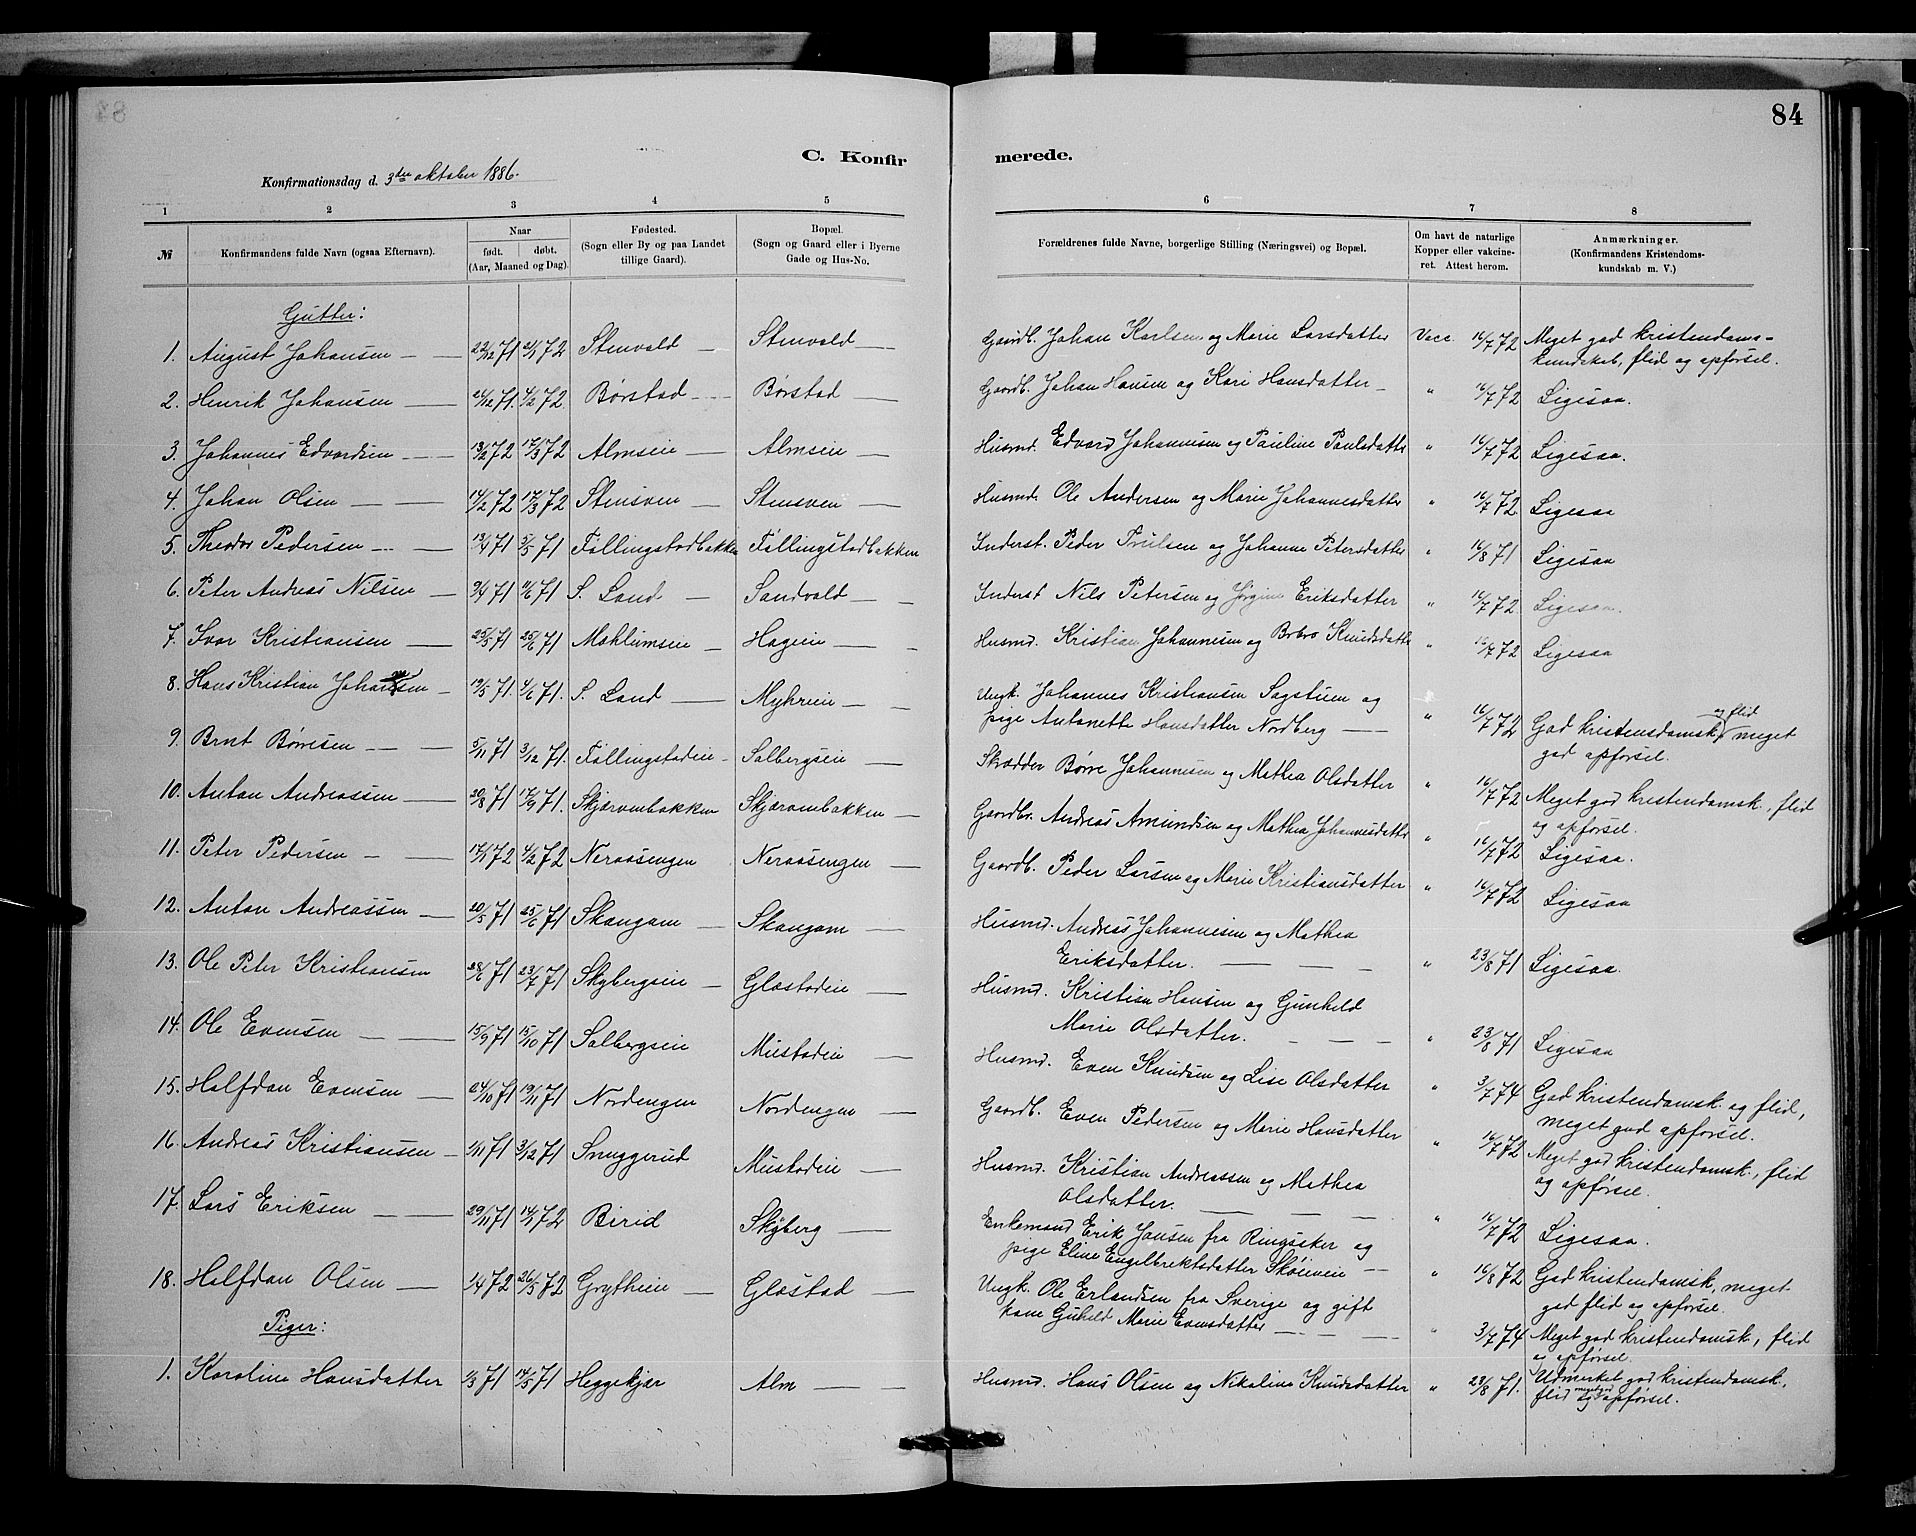 84
C. Konfirmerede.
Konfirmationsdag d. 3die oktober 1886.
1 2 3 4 5 6 7 8
№
Konfirmandens fulde Navn (ogsaa Efternavn).
Naar
født. døbt.
(Aar, Maaned og Dag).
Fødested.
(Sogn eller By og paa Landet
tillige Gaard).
Bopæl.
(Sogn og Gaard eller i Byerne
Gade og Hus-No.
Forældrenes fulde Navne, borgerlige Stilling (Næringsvei) og Bopæl.
Om havt de naturlige
Kopper eller vakcine-
ret. Attest herom.
Anmærkninger.
(Konfirmandens Kristendoms-
kundskab m. V.)
Gutter:
1. August Johansen 22/12 71 21/1 72 Stenvald Stenvald Gaardb. Johan Karlsen og Marie Larsdatter Vacc. 16/7 72 Meget god kristendoms-
kundskab, flid og opførsel.
2. Henrik Johansen 24/12 71. 4/2 72. Børstad Børstad Gaardb. Johan Hansen og Kari Hansdatter " 16/7 72 Ligesaa.
3. Johannes Edvardsen 13/2 72 17/3 72 Almseie Almseie Husmd. Edvard Johannesen og Pauline Paulsdatter " 16/7 72 Ligesaa.
4. Johan Olsen 14/2 72 17/3 72 Stensven Stensven Husmd. Ole Andersen og Marie Johannesdatter " 16/7 72 Ligesaa
5. Theodor Pedersen 13/4 71 5/5 71 Fallingstadbakken Fallingstadbakken Inderst. Peder Trulsen og Johanne Petersdatter " 16/8 71 Ligesaa
6. Peter Andreas Nilsen 9/4 71 11/6 71 S. Land Sandvold Inderst Nils Petersen og Jørgine Eriksdatter " 16/7 72. Ligesaa.
7. Ivar Kristiansen 25/5 71 25/6 71 Mohlumseie Hageie Husmd. Kristian Johannesen og Brbro Knudsdatter " 16/7 72 Ligesaa
8. Hans Kristian Johansen 19/5 71. 4/6 71. S. Land Myhreie Ungk. Johannes Kristiansen Sagstuen og
pige Antonette Hansdatter Nordberg " 16/7 72 God kristensdomsk. og flid meget
god opførsel.
9. Brnt Børresen 5/11 71 3/12 71. Fallingstadeie Solbergseie Skrædder Børre Johannesen og Mathea Olsdatter " 16/7 72 Meget god kristendomsk., flid
og opførsel.
10. Anton Andreassen 20/8 71 17/9 71. Skjæronbakken Skjæronbakken Gaardbr. Andreas Amundsen og Mathea Johannesdatter " 16/7 72 Ligesaa.
11. Peter Pedersen 17/1 72 4/2 72 Neraasengen Neraasengen Gaardb. Peder Larsen og Marie Kristiansdatter " 16/7 72 Ligesaa
12. Anton Andreassen 20/5 71 25/6 71 Skangam Skangam Husmd. Andreas Johannesen og Mathea
Eriksdatter. " 23/8 71 Ligesaa.
13. Ole Peter Kristiansen 28/6 71 23/7 71 Skybergseie Glæstadeie Husmd. Kristian Hansen og Gunhild
Marie Olsdatter. " 23/8 71 Ligesaa
14. Ole Evensen 15/9 71 15/10 71 Solbergseie Mustadeie Husmd. Even Knudsen og Lise Olsdatter " 3/7 74 God kristendomsk. og flid,
meget god opførsel.
15. Halfdan Evensen 04/10 71 19/11 71 Nordengen Nordengen Gaardb. Even Pedersen og Marie Hansdatter " 16/7 72 Meget god kristendomsk., flid
og opførsel.
16. Andreas Kristiansen 1/11 71 3/12 71 Snuggerud Mustadeie Husmd. Kristian Andreassen og Mathea
Olsdatter. " 16/7 72 Ligesaa.
17. Lars Eriksen 29/11 71 14/1 72 Birid Skyberg Enkemand Erik Jansen fra Ringsaker og
pige Eline Engelbrektsdatter Skøiveie " 16/8 72 God kristendomsk, meget
god flid og opførsel.
18. Halfdan Olsen 1/4 72 26/5 72 Grytheie Glæstad Ungk. Ole Erlandsen fra Sverige og gift
kone Guhild Marie Evensdatter " 3/7 74 Meget god kristendomsk, flid
og opførsel.
Piger:
1. Karoline Hansdatter 1/3 71 14/5 71 Heggekjær Alm Husmd. Hans Olsen og Nikoline Knudsdatter " 23/8 71. Udmerket god kristendomsk.,
flid og meget god opførsel.